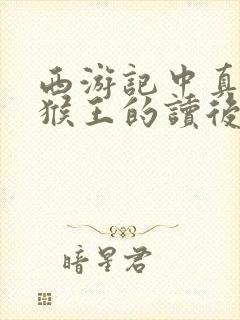 西游記中真
猴王的讀後
暗星君